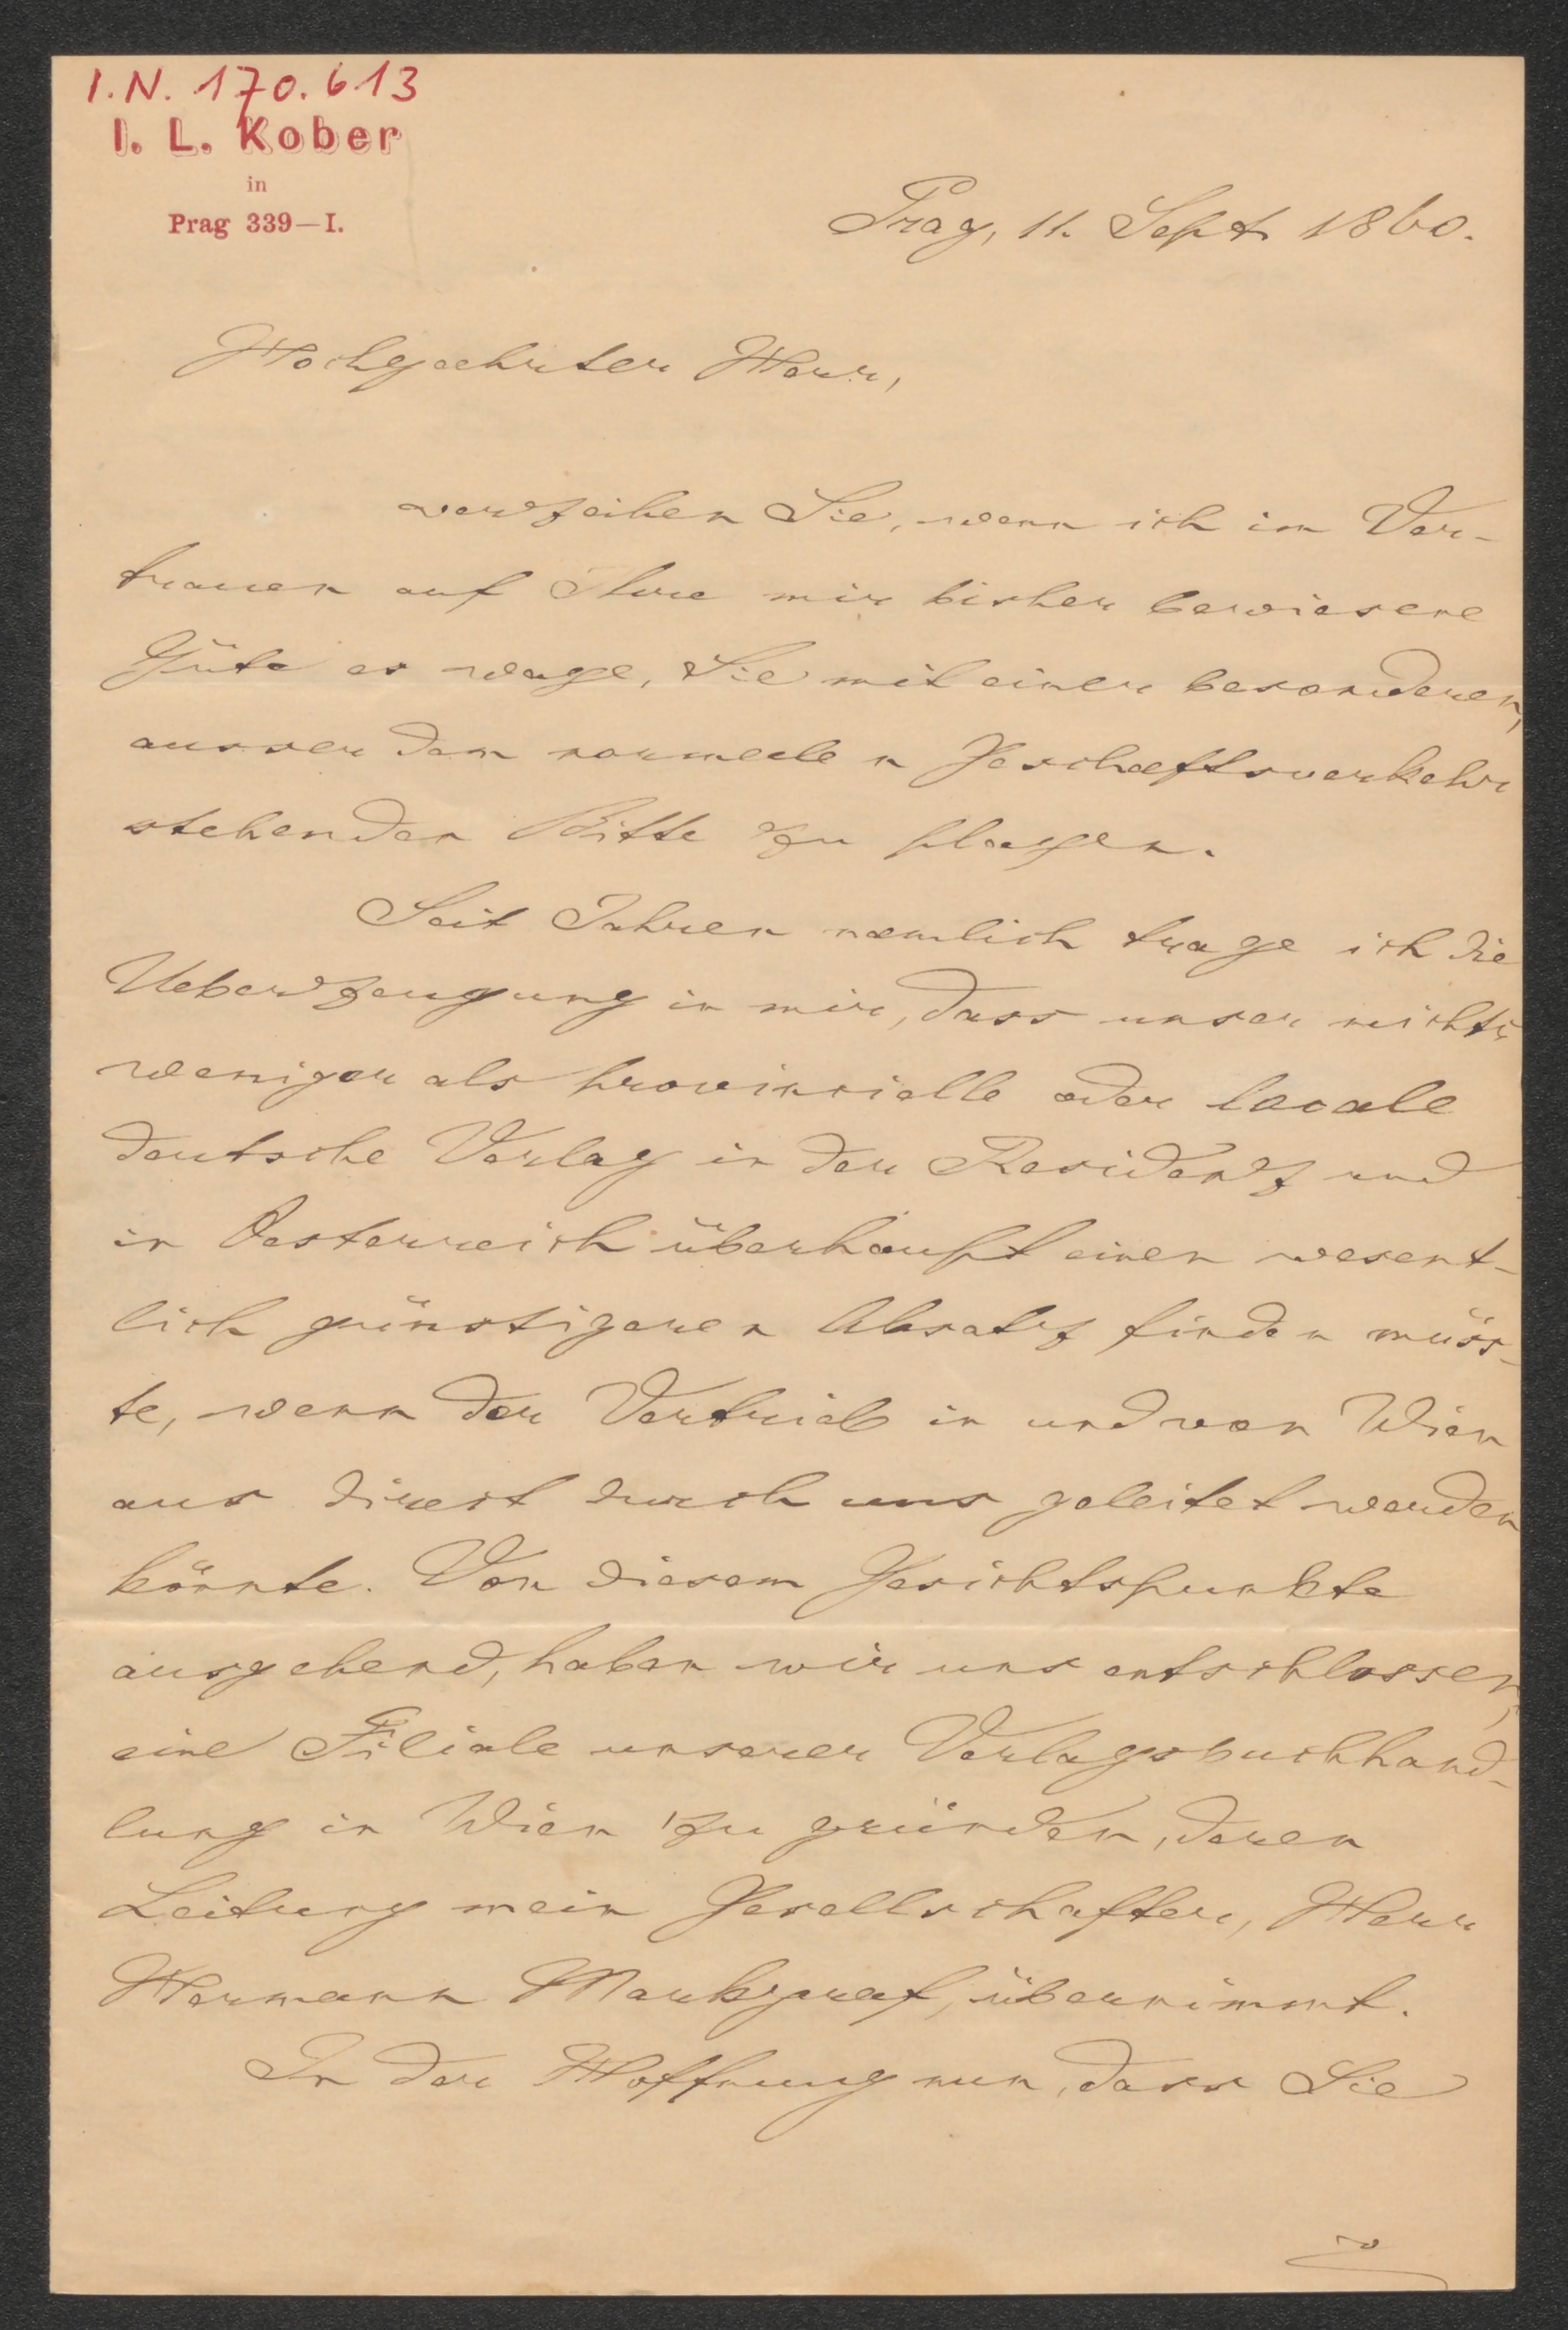 I.N. 170.613
I. L. Kober
in
Prag 339—I.
Prag, 11. Sept. 1860.
Hochgeehrter Herr,
verzeihen Sie, wenn ich im Ver-
trauen auf Ihre mir bisher bewiesene
Güte es wage, Sie mit einer besonderen,
ausser dem normalen Geschaeftsverkehr
stehenden Bitte zu plagen.
Seit Jahren nämlich trage ich die
Ueberzeugung in mir, dass unser nichts
weniger als provinzielle oder locale
deutsche Verlag in der Residenz und
in Oesterreich überhaupt einen wesent-
lich günstigeren Absatz finden müss-
te, wenn der Vertrieb in und von Wien
aus direct durch uns geleitet werden
könnte. Von diesem Gesichtspunkte
ausgehend, haben wir uns entschlossen,
eine Filiale unserer Verlagsbuchhand-
lung in Wien zu gründen, deren
Leitung mein Gesellschafter, Herr
Hermann Markgraf, übernimmt.
In der Hoffnung nun, dass Sie